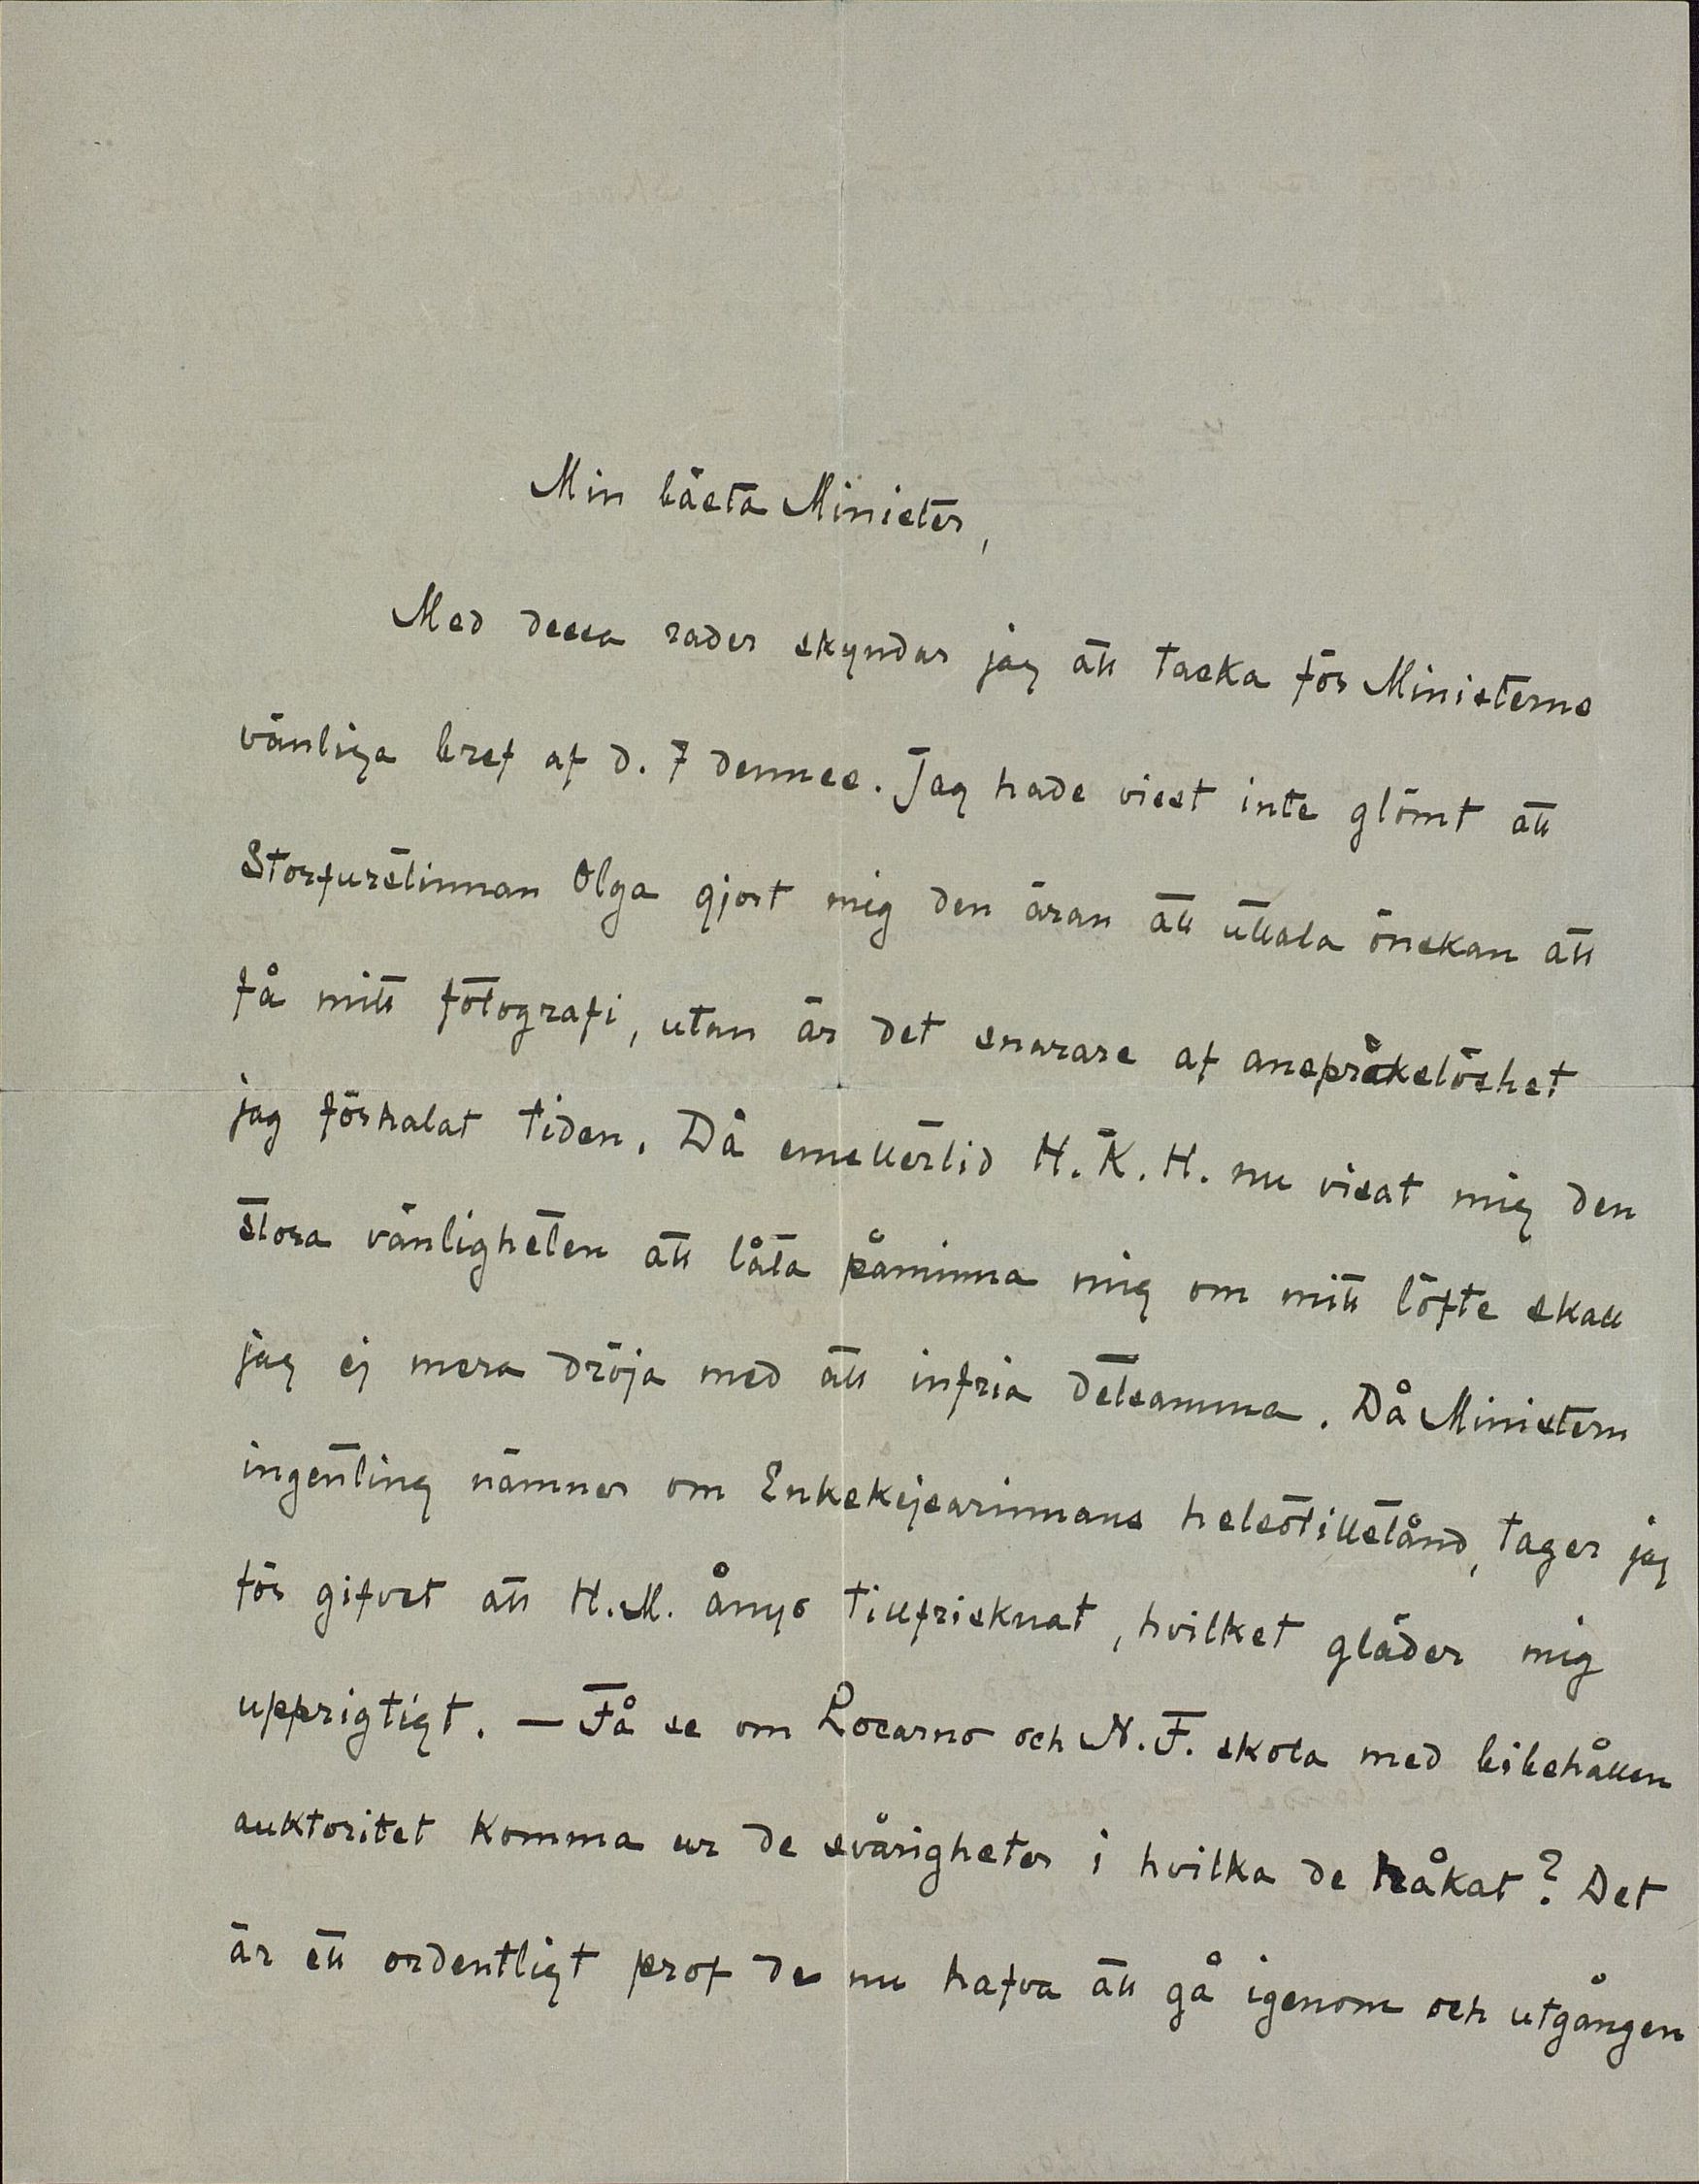 Min bästa Minister,
Med dessa rader skyndar jag att tacka för Ministerns
vänliga bref af d. 7 dennes. Jag hade visst inte glömt att
Storfurstinnan Olga gjort mig den äran att uttala önskan att
få mitt fotografi, utan är det snarare af anspråkslöshet
jag förhalat tiden. Då emellertid H.K.H. nu visat mig den
stora vänligheten att låta påminna mig om mitt löfte skall
jag ej mera dröja med att infria detsamma. Då Ministern
ingenting nämner om Enkekejsarinnans helsotillstånd, tager jag
för gifvet att H.M. ånyo tillfrisknat, hvilket gläder mig
upprigtigt. — Få se om Locarno och N.F. skola med bibehållen
auktoritet komma ur de svårigheter i hvilka de råkat? Det
är ett ordentligt prof de nu hafva att gå igenom och utgången